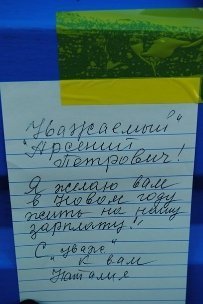 "Уважаемый"
"Арсений
Петрович!
Я желаю вам
в Новом году
жить на нашу
зарплату!"
С "уваже"
к вам
Наталия